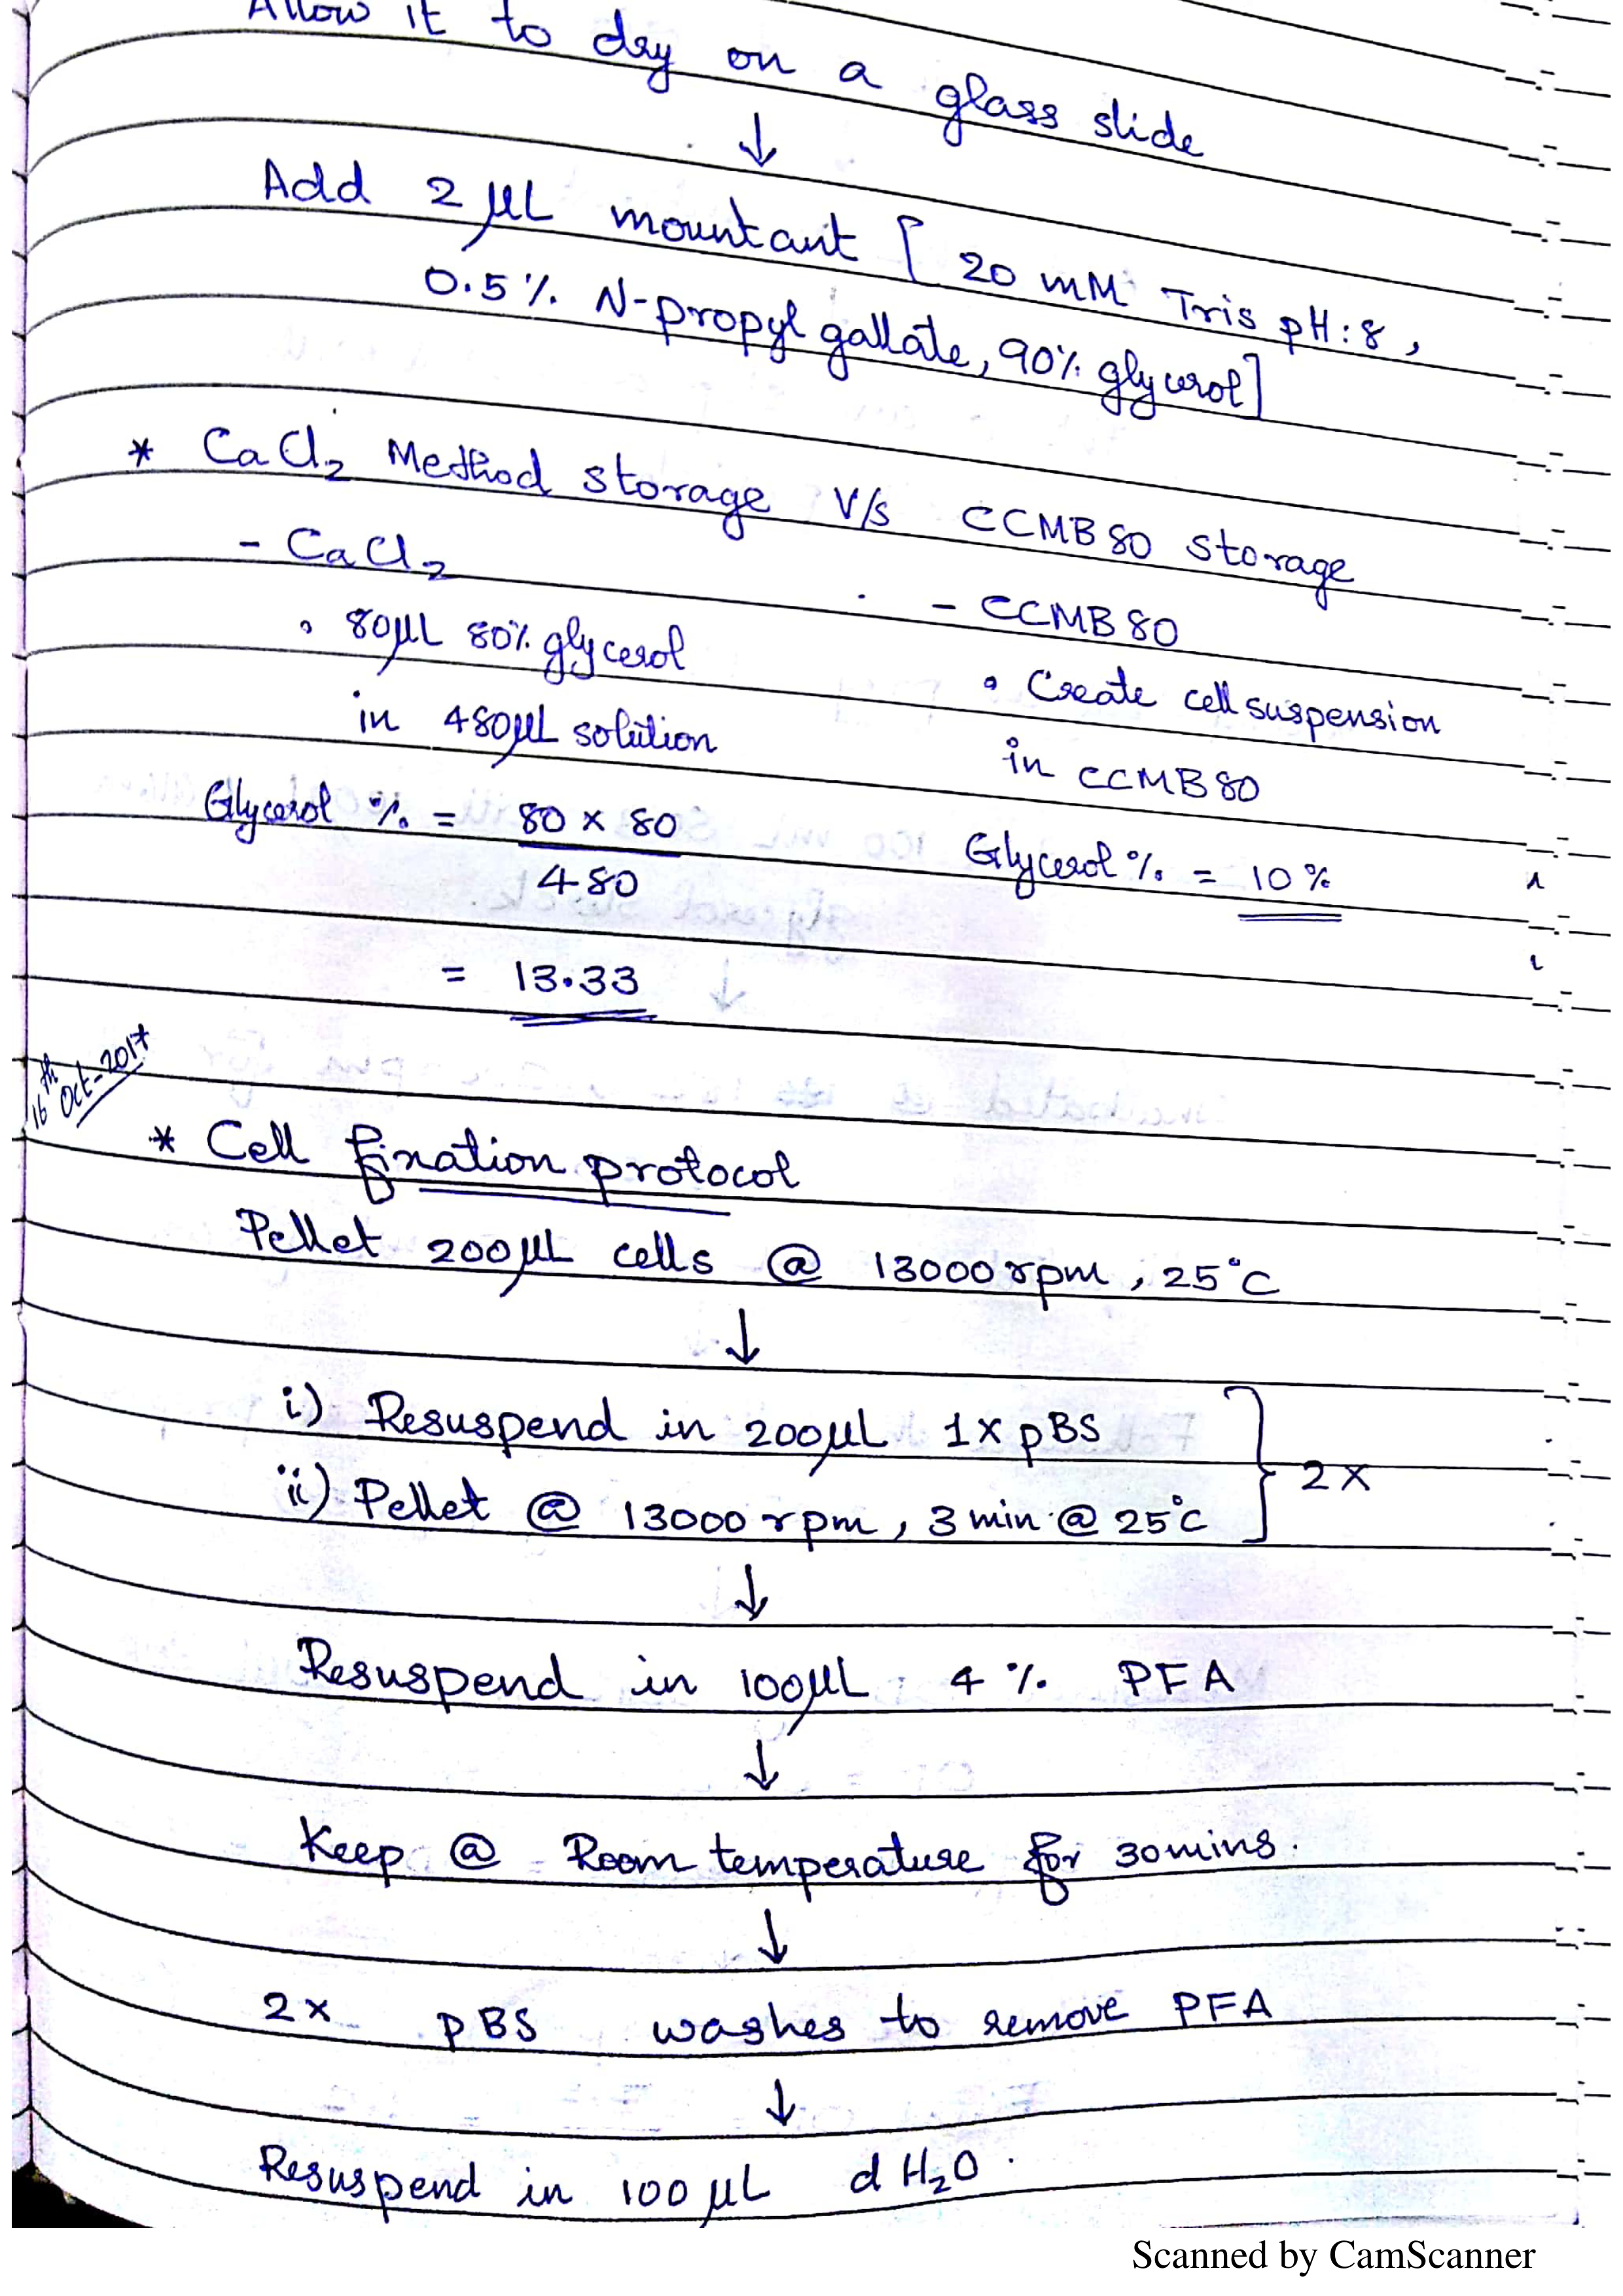 Allow it to dry on a glass slide
↓
Add 2 μL mountant [20 mM Tris pH:8,
0.5% N-propyl gallate, 90% glycerol]
* CaCl₂ Method storage V/s CCMB80 storage
- CaCl₂
• 80μL 80% glycerol
in 480μL solution
Glycerol % = 80 x 80
480
= 13.33
- CCMB80
• Create cell suspension
in CCMB80
Glycerol % = 10%
16th Oct-2017
* Cell fixation protocol
Pellet 200μL cells @ 13000 rpm, 25°C
↓
i) Resuspend in 200μL 1x pBS
ii) Pellet @ 13000 rpm, 3 min @ 25°C
} 2x
↓
Resuspend in 100μL 4% PFA
↓
Keep @ Room temperature for 30mins.
↓
2x pBS washes to remove PFA
↓
Resuspend in 100 μL dH₂O.
Scanned by CamScanner